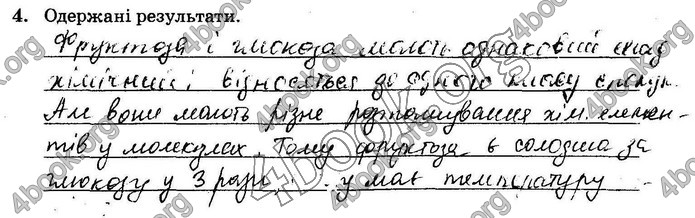 4. Одержані результати.
Фруктоза і глюкоза мають однаковий склад
хімічний і відносяться до одного класу сполук.
Ам вони мають різне розташування хім. елемен-
тів у молекулах. Тому фруктоза є солодша за
глюкозу у 3 рази, у має температуру
4book.org